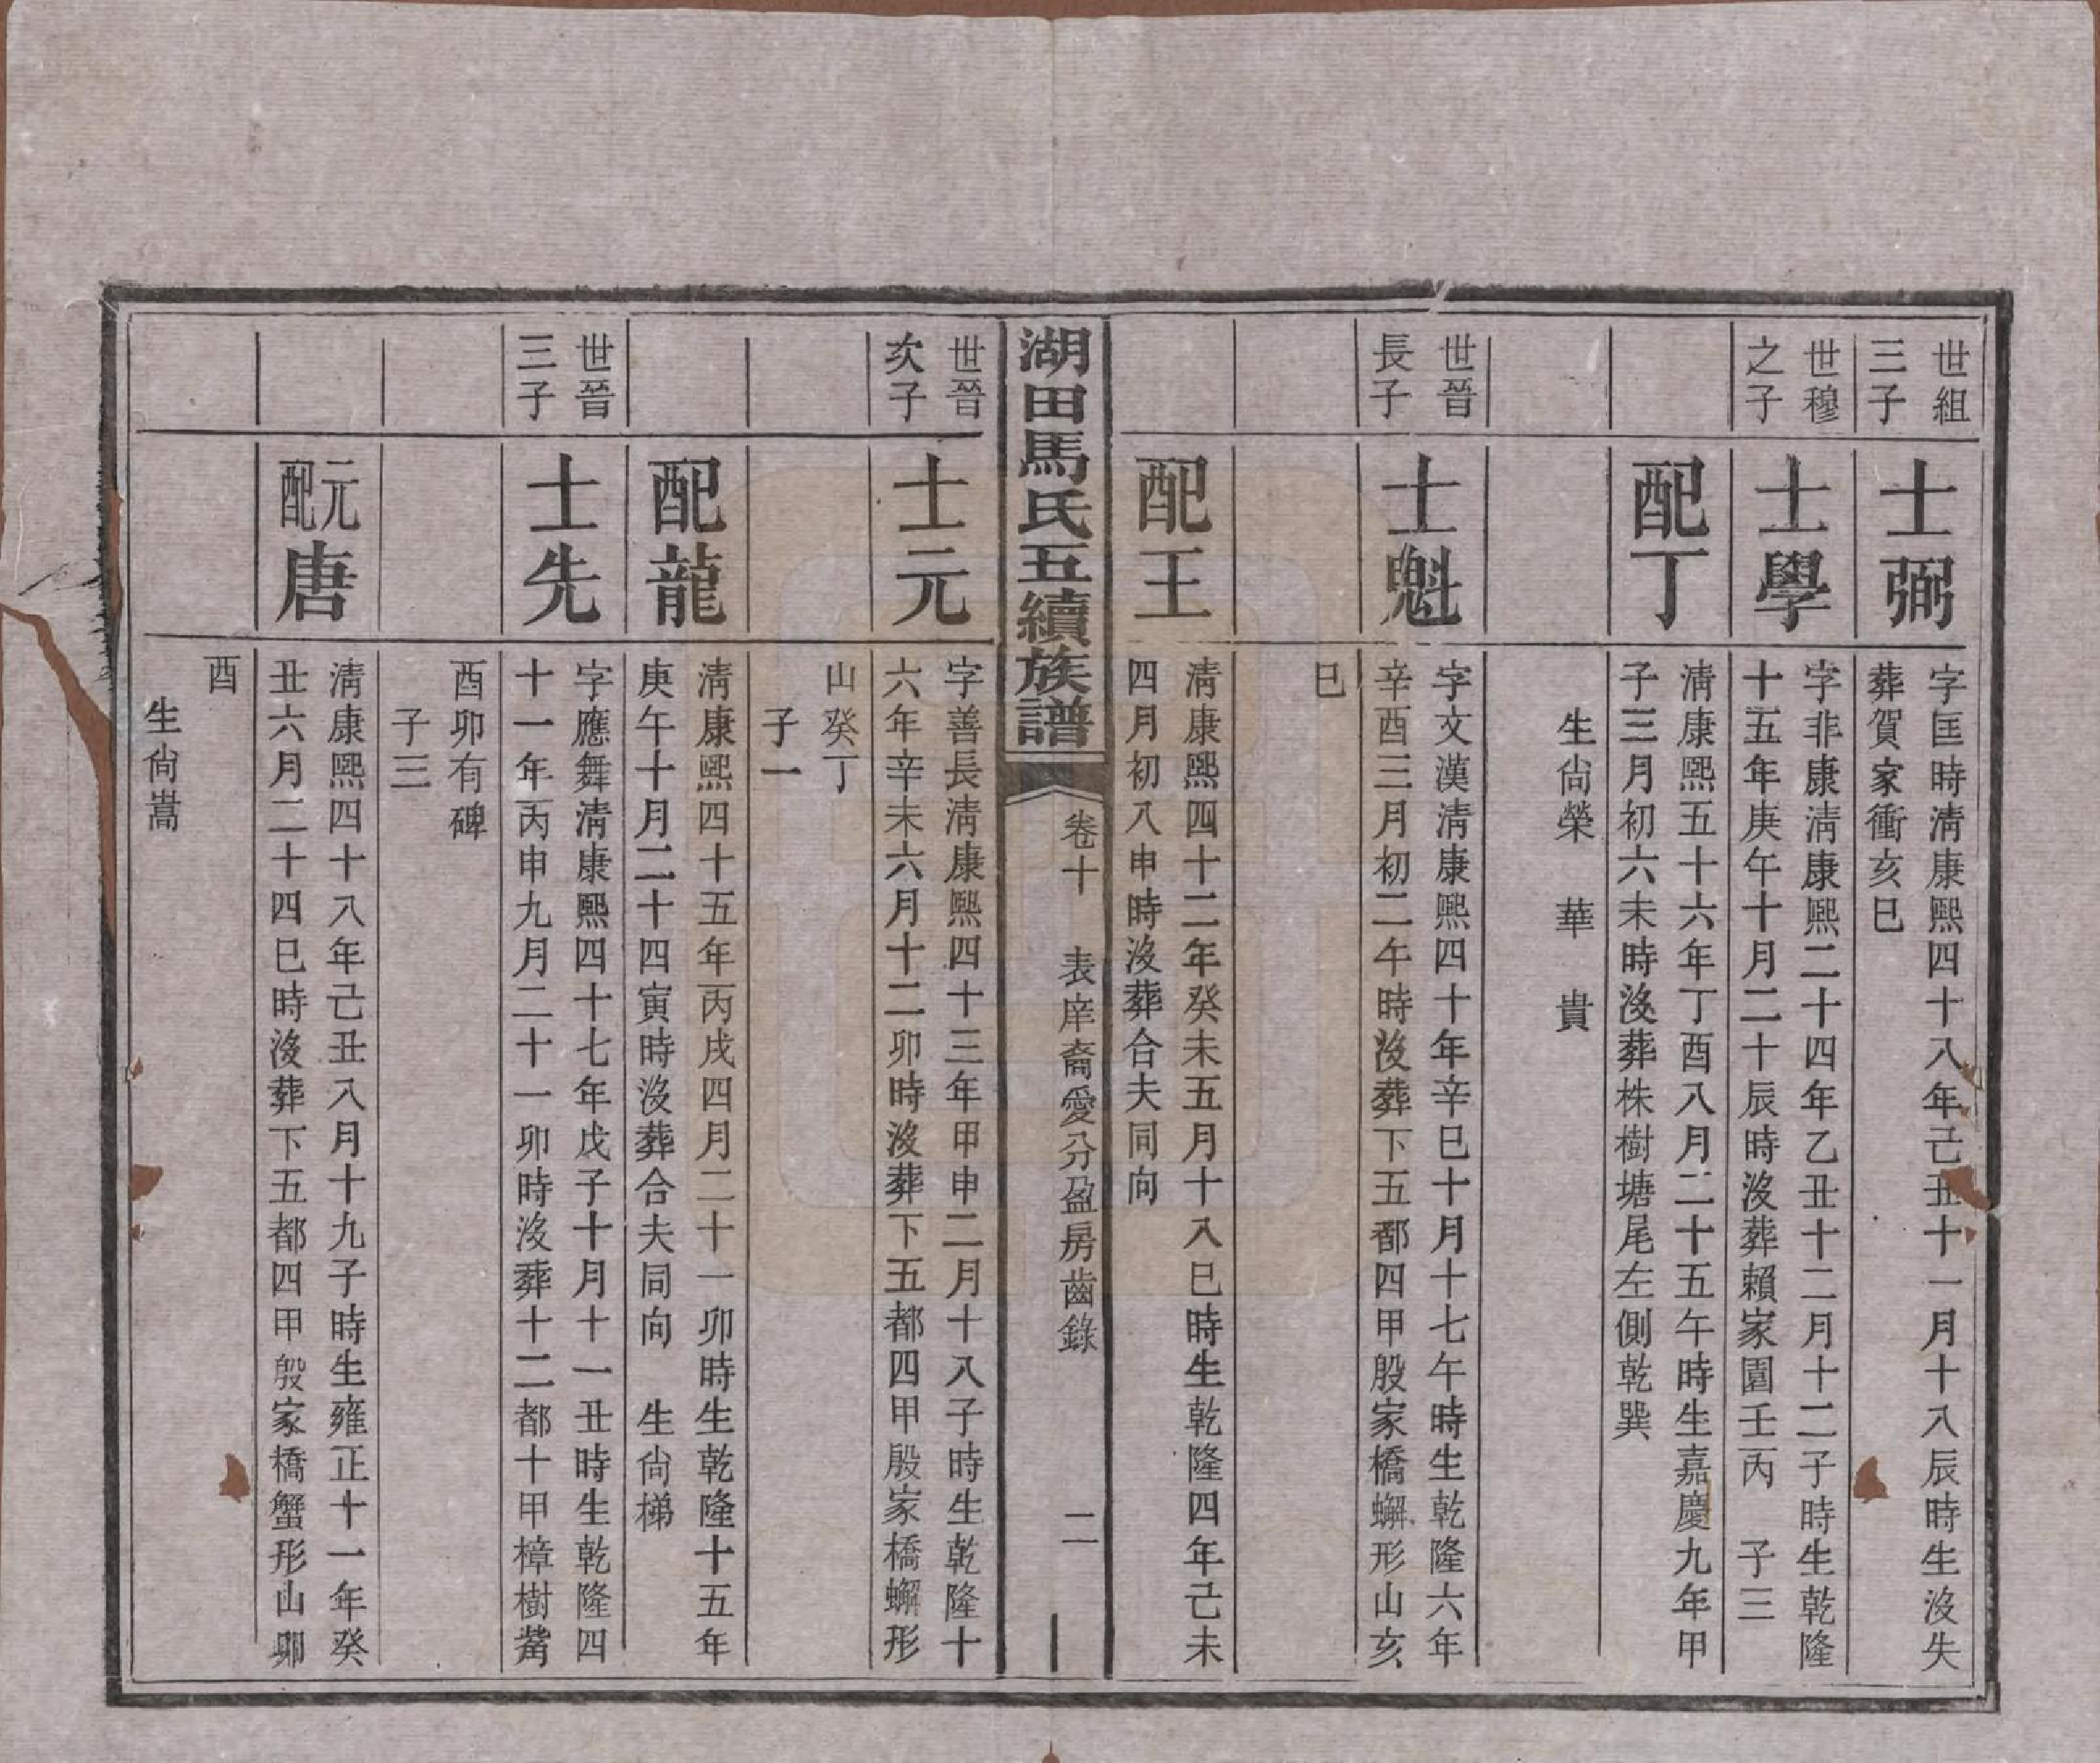 世組
三子
士弼
字匡時清康熙四十八年己丑十一月十八辰時生沒失
葬賀家衝亥巳
世穆
之子
士學
字非康清康熙二十四年乙丑十二月十二子時生乾隆
十五年庚午十月二十辰時沒葬賴家園壬丙 子三
配丁
清康熙五十六年丁酉八月二十五午時生嘉慶九年甲
子三月初六未時沒葬株樹塘尾左側乾巽
生尙榮 華 貴
世晉
長子
士魁
字文漢清康熙四十年辛巳十月十七午時生乾隆六年
辛酉三月初二午時沒葬下五都四甲殷家橋蠏形山亥
巳
配王
清康熙四十二年癸未五月十八巳時生乾隆四年己未
四月初八申時沒葬合夫同向
湖田馬氏五續族譜
卷十 表庠裔愛分盈房齒錄 二
世晉
次子
士元
字善長清康熙四十三年甲申二月十八子時生乾隆十
六年辛未六月十二卯時沒葬下五都四甲殷家橋蠏形
山癸丁
子一
配龍
清康熙四十五年丙戌四月二十一卯時生乾隆十五年
庚午十月二十四寅時沒葬合夫同向 生尙梯
世晉
三子
士先
字應舞清康熙四十七年戊子十月十一丑時生乾隆四
十一年丙申九月二十一卯時沒葬十二都十甲樟樹
酉卯有碑
子三
元配唐
清康熙四十八年己丑八月十九子時生雍正十一年癸
丑六月二十四巳時沒葬下五都四甲殷家橋蟹形山卯
酉
生尙嵩